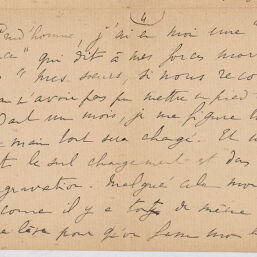 4
Prud'homme, j'ai en moi une "
" qui dit à mes forces mor
" mes sœurs, si nous reco
n'avoir pas pu mettre un pied
Tout un mois, je me figure
main tout sera changé. Et
t le seul changement est dans
gravation. Malgré cela mon
come il y a de même
lève pour qu'on fasse mon l